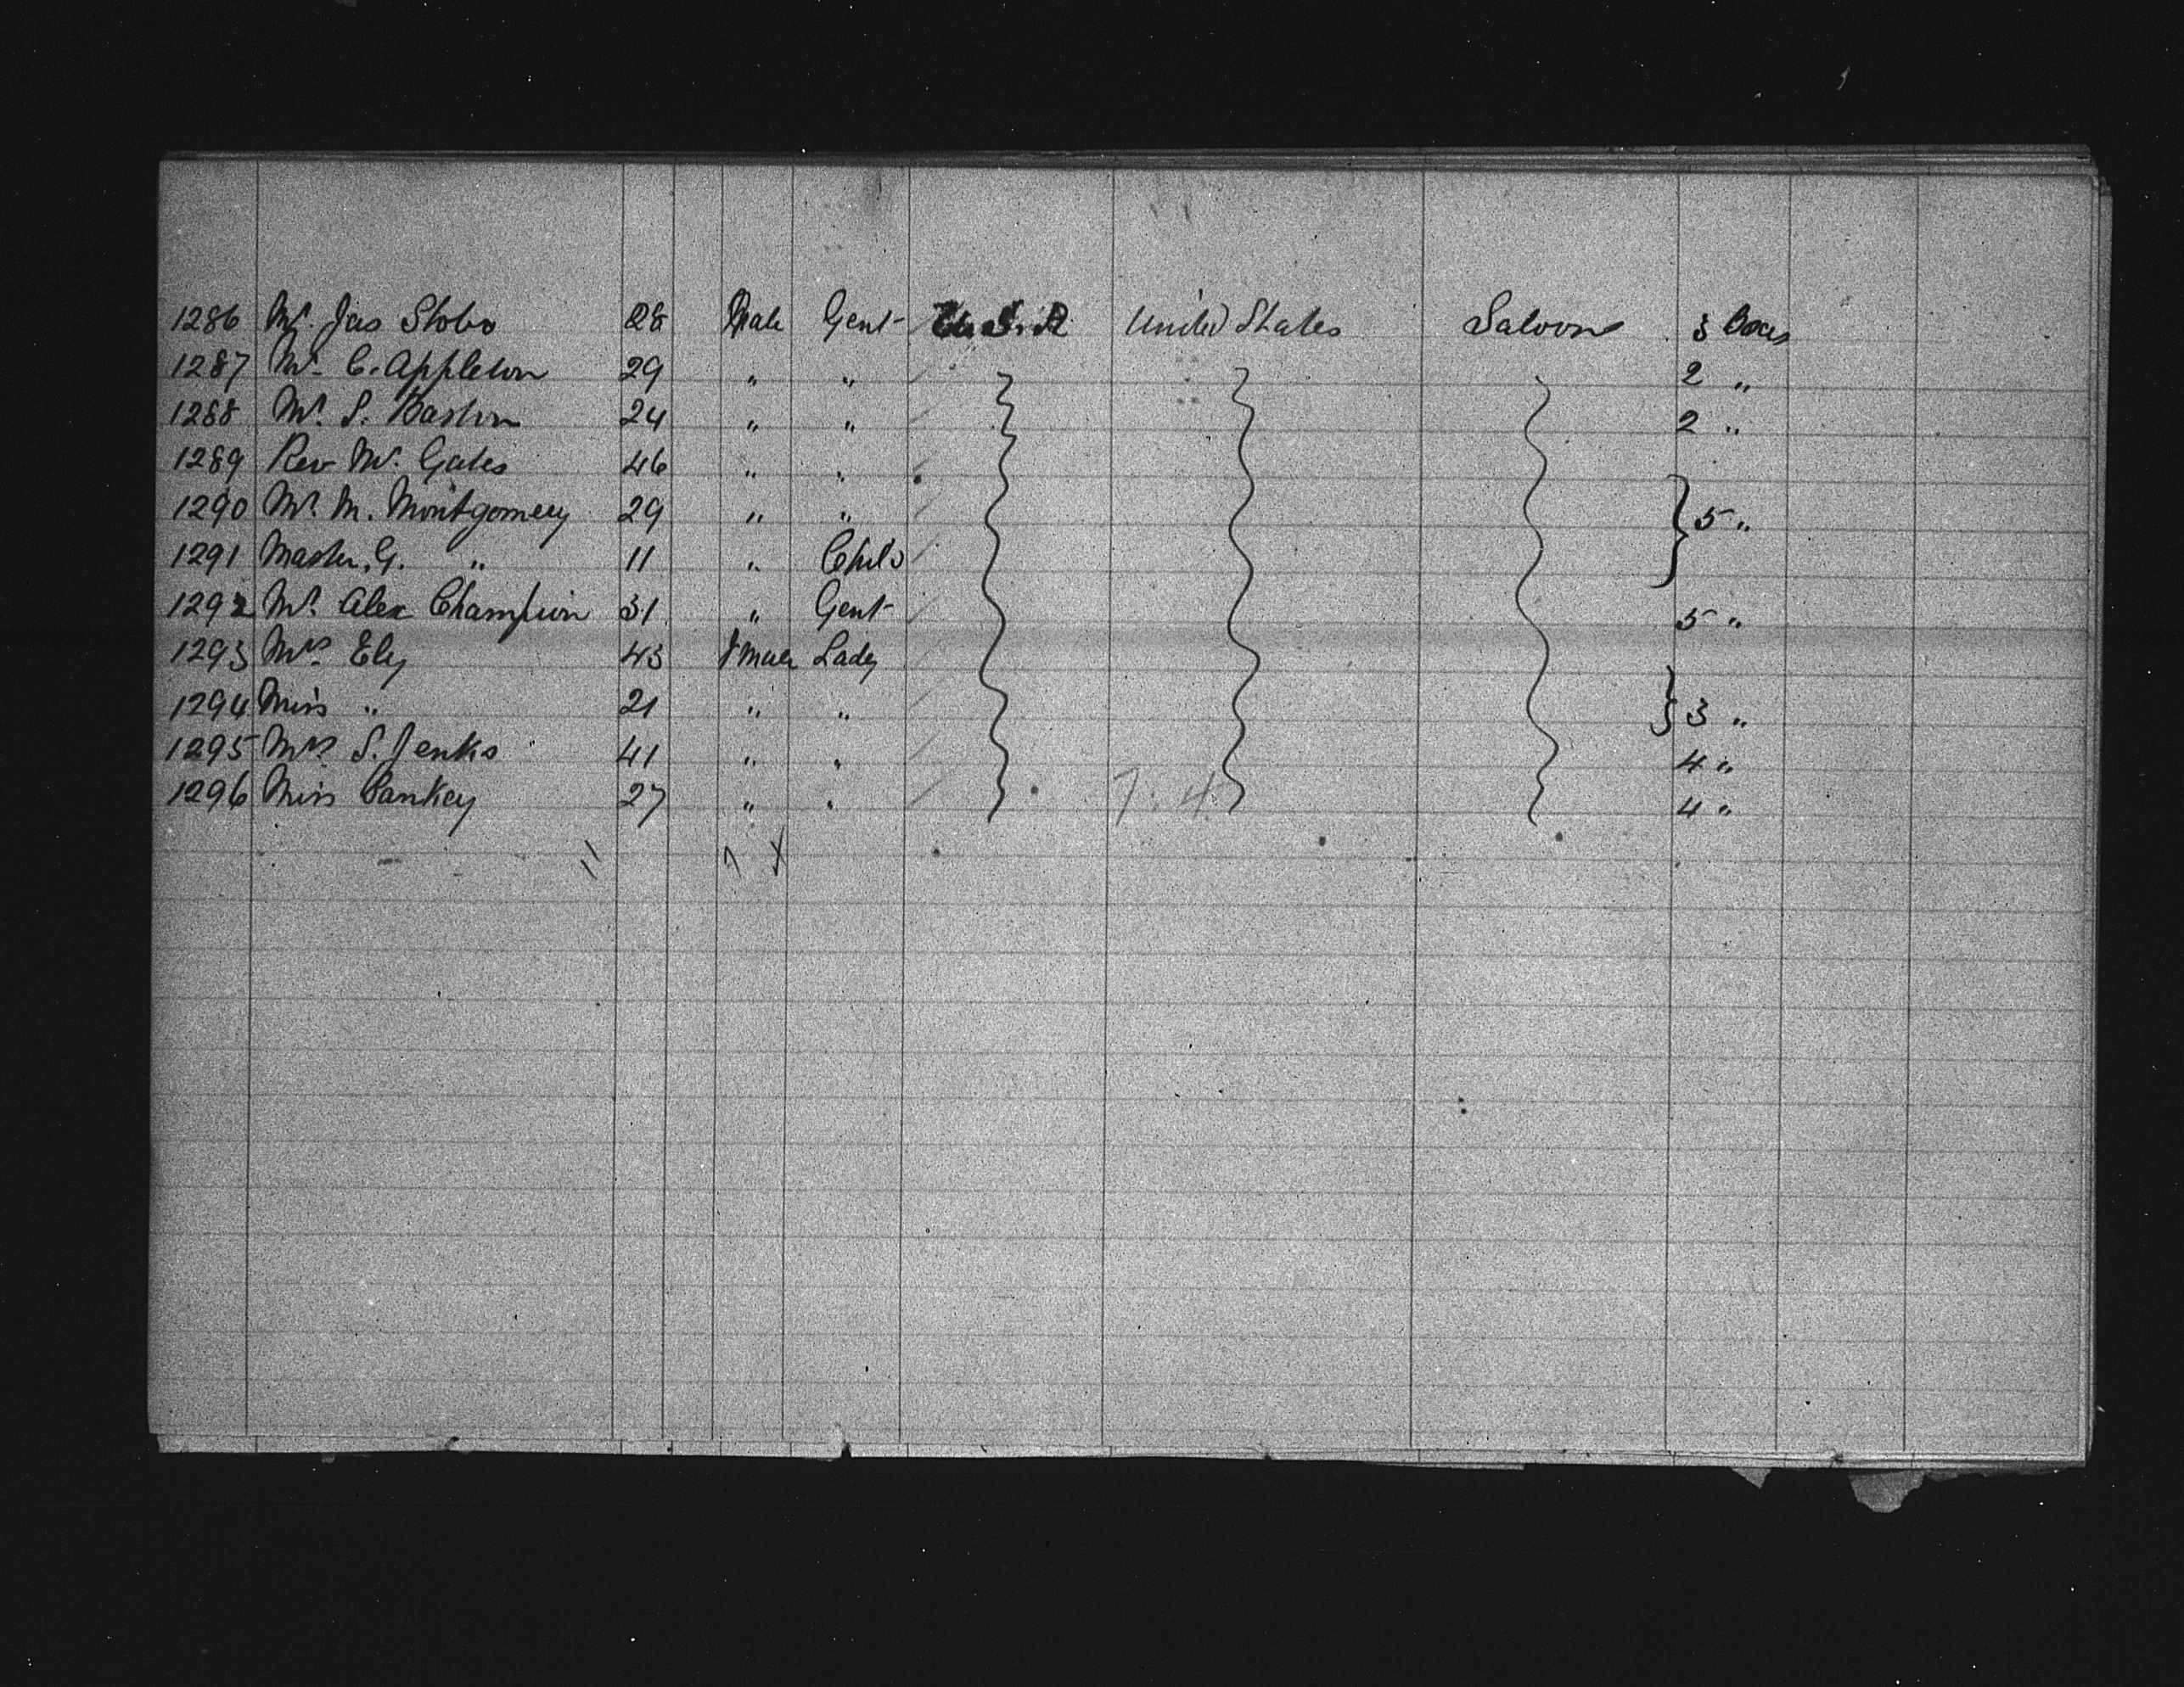 1286 Mr. Jas Stobo 28 Male Gent U.S.A United States Saloon 3 Boxes
1287 Mr. C. Appleton 29 " " 2 "
1288 Mr. S. Baston 24 " " 2 "
1289 Rev Mr. Gates 46 " "
1290 Mr. M. Montgomery 29 " " } 5 "
1291 Master. G. " 11 " Child
1292 Mr. Alex Champion 31 " Gent 5 "
1293 Mrs. Ely 43 Female Lady
1294 Miss " 21 " " } 3 "
1295 Mrs. S. Jenks 41 " " 4 "
1296 Miss Pankey 27 " " 4 "
11 7 4